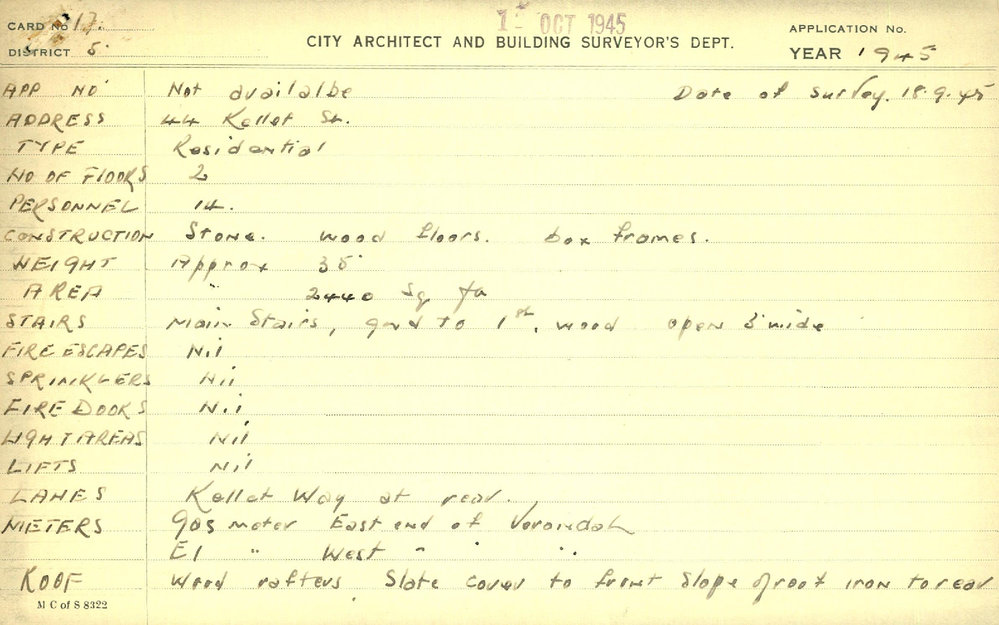 CARD No 17.
1 - OCT 1945
APPLICATION No.
DISTRICT 5.
CITY ARCHITECT AND BUILDING SURVEYOR'S DEPT.
YEAR 1945
APP NO Not availalbe Date of Survey. 18.9.45
ADDRESS 44 Kellet St.
TYPE Residential
NO OF FLOORS 2
PERSONNEL 14.
CONSTRUCTION Stone. wood floors. box frames.
HEIGHT Approx 35'
AREA " 2440 Sq ft
STAIRS Main Stairs, gnd to 1st. wood open 3' wide
FIRE ESCAPES Nil
SPRINKLERS Nil
FIRE DOORS Nil
LIGHT AREAS Nil
LIFTS Nil
LANES Kellet Way at rear.
METERS Gas meter East end of Verandah
El " West " " "
ROOF Wood rafters Slate cover to front slope of roof iron to rear
M C of S 8322